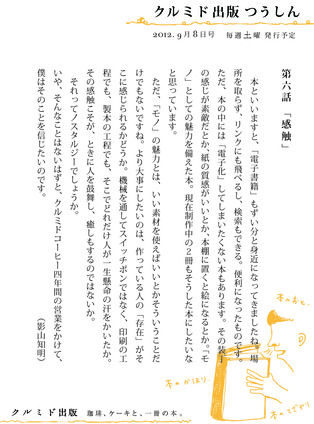 クルミド出版 つうしん
2012.9月8日号 毎週土曜 発行予定
第六話 「感触」
本といいますと、「電子書籍」もずい分と身近になってきましたね。場
所を取らず、リンクにも飛べるし、検索もできる。便利になったものです。
ただ、本の中には「電子化」してしまいたくない本もあります。その装丁
の感じが素敵だとか、紙の質感がいいとか、本棚に置くと絵になるとか。「モ
ノ」としての魅力を備えた本。現在制作中の２冊もそうした本にしたいな
と思っています。
ただ、「モノ」の魅力とは、いい素材を使えばいいとかそういうことだ
けでもないですね。より大事にしたいのは、作っている人の「存在」がそ
こに感じられるかどうか。機械を通してスイッチポンではなく、印刷の工
程でも、製本の工程でも、そこでどれだけ人が一生懸命の汗をかいたか。
その感触こそが、ときに人を鼓舞し、癒しもするのではないか。
それってノスタルジーでしょうか。
いや、そんなことはないはずと、クルミドコーヒー四年間の営業をかけて、
僕はそのことを信じたいのです。
（影山知明）
本のおと
本のかほり
本のてざわり
クルミド出版 珈琲、ケーキと、一冊の本。